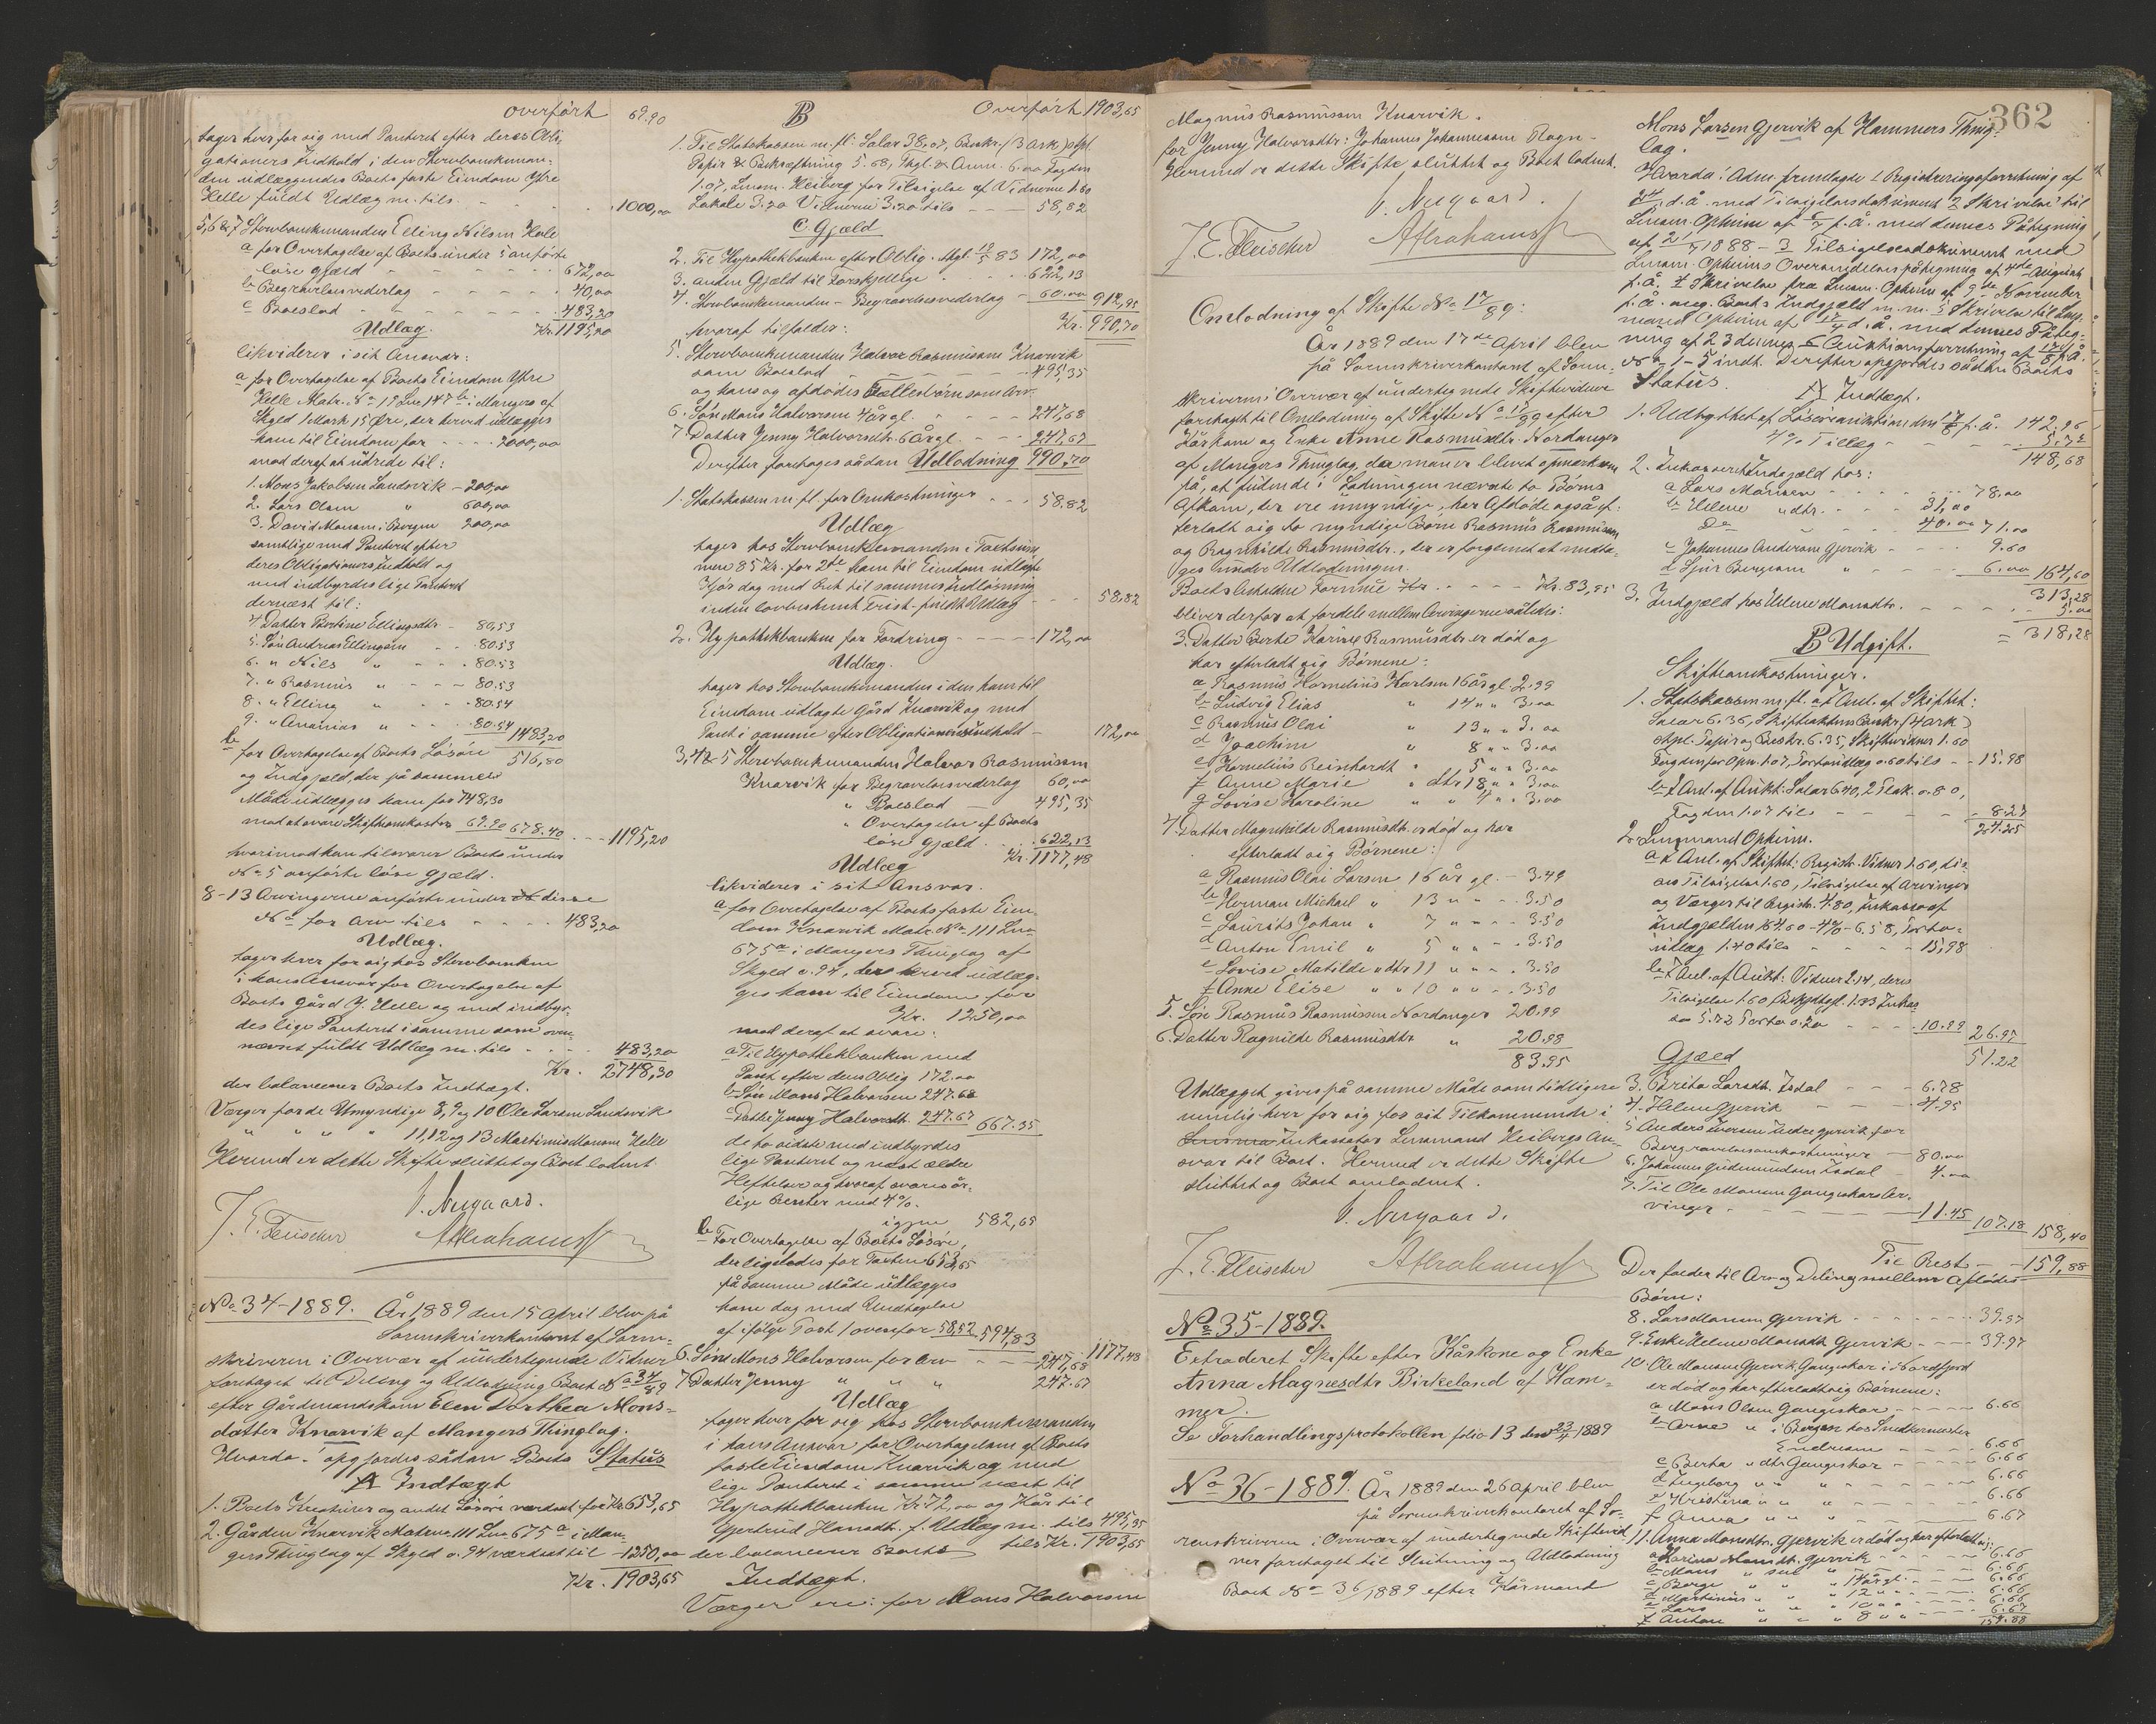 overført 69.90
tager hver for sig med Panteret efter deres Obli-
gationers Indhold i den Stervbonkeman-
den udlæggendes Boets faste Eiendom Ytre
Helle fuldt Udlæg m. tils. - - - 1000,00
5,6 & 7 Stervboenkemanden Elling Nilsen Helle
a for Overtagelse af Boets under 5 anførte
løse Gjæld - - - 672,00
b Begravelsesvederlag - - - 40,00
c Boeslod - - - 483,20
Udlæg. Kr. 1195,20
likviderer i sit Ansvar:
a for Overtagelse af Boets Eiendom Ytre
Helle Matr. No 19 Lne 147 b i Mangers af
Skyld 1 Mark 15 Øre, der herved udlægges
ham til Eiendom for - - - 2000,00
mod deraf at udrede til:
1. Mons Jakobsen Landsvik - 200,00
2. Lars Olsen " 600,00
3. David Monsen i Bergen 200,00
samtlige med Panteret efter
deres Obligationers Indhold og
med indbyrdes lige Panteret
dernæst til:
4. Datter Bertine Ellingsdtr - 80,53
5. Søn Andreas Ellingsen - - 80.53
6. " Nils " - - - 80.53
7. " Rasmus " - - - 80.53
8. " Elling " - - - 80.54
9. " Ananias " - - - 80.54 1483,20
516,80
b for Overtagelse af Boets Løsøre
og Indgjæld, der på samme
Måde udlægges ham for 748,30
mod at svare Skifteomkostn. 69.90 678.40 - - - 1195,20
hvorimod han tilsvarer Boets under
No 5 anførte løse Gjæld.
8-13 Arvingerne anførte under disse
No for Arv tils - - - 483,20
Udlæg.
tages hver for sig hos Stervboenkem
i hans Ansvar for Overtagelse af
Boets Gård Y. Helle og med indbyr-
des lige Panteret i samme som oven-
nævnt fuldt Udlæg m. tils - - - 483,20
Kr. 2748,30
der balancerer Boets Indtægt.
Værger for de Umyndige 8, 9 og 10 Ole Larsen Landsvik
" " " " 11, 12 og 13 Martinus Monsen Helle
Hermed er dette Skifte sluttet og Boet lodnet
V. Neegaard.
J. E. Fleischer Abrahams
No 34-1889. År 1889 den 15 April blev på
Sorenskriverkontoret af Soren-
skriveren i Overvær af undertegnede Vidner
foretaget til Deling og Udlodning Boet No 34/89
efter Gårdmandskone Elen Dorthea Mons-
datter Knarvik af Mangers Thinglag.
Hvorda: opgjordes sådan Boets Status
A Indtægt
1. Boets Kreaturer og andet Løsøre værdsat for Kr. 653,65
2. Gården Knarvik Matrno 111 Lne 675 a i Man-
gers Thinglag af Skyld 0.94 værdsat til - 1250,00
Kr. 1903,65
B Overført 1903,65
1. Til Statskassen m. fl: Salar 38,07, Beskr. (3 Ark) stpl.
Papir & Bekræftning 5.68, Thgl. & Anm. 6.00 Fogden
1.07, Lensm. Heiberg for Tilsigelse af Vidnerne 1.60
Lokale 3.20 Vidnerne 3.20 tils - - - 58,82
C. Gjæld
2. Til Hypothekbanken efter Oblig. thgl. 83 172,00
3. anden Gjæld til Forskjellige - - 622,13
4. Stervboenkemanden - Begravelsesvederlag - 60.00 912,95
hvoraf tilfalder: Kr. 990,70
5. Stervboenkemanden Halvor Rasmussen Knarvik
som Boeslod - - - 495,35
og hans og afdødes Fællesbørn som Arv:
6. Søn Mons Halvorsen 4 år gl. - - - 247,68
7. Datter Jenny Halvorsdtr. 6 år gl. - - - 247,67
Derefter foretages sådan Udlodning 990,70
1. Statskassen m. fl. for Omkostninger - - - 58.82
Udlæg
tages hos Stervboenkemanden i Taxtsum-
men 85 Kr. for 2de ham til Eiendom udlagte
Kjør dog med Ret til sammes Indløsning
inden lovbestemt Frist fuldt Udlæg - - - 58,82
2. Hypothekbanken for Fordring - - - 172,00
Udlæg.
tages hos Stervboenkemanden i den ham til
Eiendom udlagte Gård Knarvik og med
Pant i samme efter Obligationens Indhold - 172,00
3, 4 & 5 Stervboenkemanden Halvor Rasmussen
Knarvik for Begravelsesvederlag 60,00
" Boeslod - 495,35
" Overtagelse af Boets
løse Gjæld - - - 622,13
Udlæg Kr. 1177,48
likviderer i sit Ansvar.
a for Overtagelse af Boets faste Eien-
dom Knarvik Matr. No 111 Lne
675 a i Mangers Thinglag af
Skyld 0.94, der herved udlæg-
ges ham til Eiendom for
Kr. 1250,00
mod deraf at svare:
a Til Hypothekbanken med
Pant efter dens Oblig 172.00
b Søn Mons Halvorsen 247.68
c Datter Jenny Halvorsdtr. 247.67 667.35
de to sidste med indbyrdes
lige Panteret og næst ældre
Heftelser og hvoraf svares år-
lige Renter med 4%.
igjen 582,65
b For Overtagelse af Boets Løsøre,
der ligeledes for Taxten 653,65
på samme Måde udlægges
ham dog med Undtagelse
af ifølge Post 1 ovenfor 58,52 594,83
1177,48
6. Søn Mons Halvorsen for Arv - - - 247,68
7. Datter Jenny " " " 247.67
Udlæg
tager hver for sig hos Stervboenkemanden
i hans Ansvar for Overtagelsen af Boets
faste Eiendom Knarvik og med
lige Panteret i samme næst til
Hypothekbanken Kr 172,00 og Kår til
Gjertrud Hansdtr. f. Udlæg m. tils 495,35
der balancerer Boets tils Kr. 1903,65
Indtægt.
Værger ere: for Mons Halvorsen
Magnus Rasmussen Knarvik.
for Jenny Halvorsdtr: Johannes Johannessen Rogn-
Hermed er dette Skifte sluttet og Boet lodnet.
V. Neegaard.
J. E. Fleischer Abrahams
Omlodning af Skifte No 17/89:
År 1889 den 17de April blev
på Sorenskriverkontoret af Soren-
skriveren i Overvær af undertegnede Skiftevidner
foretaget til Omlodning af Skifte No 17/89 efter
Kårkone og Enke Anne Rasmusdtr. Nordanger
af Mangers Thinglag, da man er blevet opmærksom
på, at foruden de i Lodningen nævnte to Børns
Afkom, der ere umyndige, har Afdøde også ef-
terladt sig to myndige Børn Rasmus Rasmussen
og Ragnhilde Rasmusdtr., der er forglemt at medta-
ges under Udlodningen.
Boets beholdne Formue - - - Kr. 83,95
bliver derfor at fordele mellem Arvingerne således:
3. Datter Berte Karine Rasmusdtr. er død og
har efterladt sig Børnene:
a Rasmus Kornelius Karlsen 16 år gl. 2.99
b Ludvig Elias " 14 " " 3.00
c Rasmus Olai " 13 " " 3.00
d Joachim " 8 " " 3.00
e Kornelius Reinhardt " 5 " " 3.00
f Anne Marie " dtr 18 " " 3.00
g Lovise Karoline " " 4 " " 3.00
4. Datter Magnhilde Rasmusdtr. er død og har
efterladt sig Børnene:
a Rasmus Olai Larsen 16 år gl. - 3.49
b Herman Michael " 13 " " - 3.50
c Laurits Johan " 7 " " - 3.50
d Anton Emil " 5 " " - 3.50
e Lovise Matilde " dtr 11 " " - 3.50
f Anne Elise " " 10 " " - 3.50
5. Søn Rasmus Rasmussen Nordanger 20.99
6. Datter Ragnilde Rasmusdtr " 20.98
83.95
Udlægget gives på samme Måde som tidligere
nemlig hver for sig fos sit Tilkommende i
Inkassator Lensmand Heibergs An-
svar til Boet. Hermed er dette Skifte
sluttet og Boet omlodnet.
V. Neegaard.
J. E. Fleischer Abrahams
No 35-1889.
Extraderet Skifte efter Kårkone og Enke
Anna Magnesdtr Birkeland af Ham-
mer.
Se Forhandlingsprotokollen folio 13 den 23/4 1889
No 36-1889. År 1889 den 26 April blev
på Sorenskriverkontoret af So-
renskriveren i Overvær af undertegnede Skiftevid-
ner foretaget til Slutning og Udlodning
Boet No 36/1889 efter Kårmand
362
Mons Larsen Gjervik af Hammers Thing-
lag.
Hvorda: Adm. fremlagde 1 Registreringsforretning af
d. å. med Tilsigelsesdokument 2 Skrivelse til
Lensm. Opheim af f. å. med dennes Påtegning
af 1888 - 3 Tilsigelsesdokument med
Lensm. Opheims Oversendelsespåtegning af 4de August
f. å. 4 Skrivelse fra Lensm. Opheim af 9de November
f. å. ang. Boets Indgjæld m. m. 5 Skrivelse til Lens-
mand Opheim af 17/4 d. å. med dennes Påteg-
ning af 23 dennes 6 Auktionsforretning af 17/8 f. å.
No 1-5 indt. Derefter opgjordes sådan Boets
Status.
A Indtægt.
1. Udbyttet af Løsøreauktion den 17/8 f. å. 142.96
4% Tillæg - - - 5.72
148,68
2. Inkasseret Indgjæld hos:
a Lars Monsen - - - 78.00
b Helene " dtr. - - - 31,00
Do 40.00 71.00
c Johannes Andersen Gjervik - - - 9.60
d Sjur Bergesen " - - - 6.00 164,60
313,28
3. Indgjæld hos Helene Monsdtr. - - - 5.00
= 318,28
B Udgift.
Skifteomkostninger.
1. Statskassen m. fl. a i Anl. af Skiftet:
Salar 6.36, Skifteaktens Beskr. (4 Ark)
stpl. Papir og Bestr. 6.35, Skiftevidner 1.60
Fogden for Opn. 1.07, Portoudlæg 0.60 tils - - 15.98
b i Anl. af Aukt: Salar 6.40, 2 Plak. 0.80,
Fogden 1.07 tils - - - 8.27
24.25
2. Lensmand Opheim.
a i Anl. af Skiftet: Registr. Vidner 1.60, dis-
ses Tilsigelse 1.60, Tilsigelse af Arvinger
og Værger til Registr. 4.80, Inkasso af
Indgjelden 164.60 - 4% - 6,58, Porto-
udlæg 1.40 tils - - - 15,98
b i Anl. af Aukt: Vidner 2.14, deres
Tilsigelse 1.60 1.33 Inkas-
so 5.72 Porto 0.20 - - - 10.99 26.97
Gjæld 51.22
3. Brita Larsdtr. Isdal - - - 6.78
4. Helene Gjervik - - - 4.95
5. Anders Iversen Indre Gjervik for
Begravelsesomkostninger - 80.00
6. Johannes Gudmundsen Isdal - 4.00
7. Til Ole Monsen Gangeskars Ar-
vinger - - - 11.45 107.18 158,40
Til Rest - - 159,88
Der falder til Arv og Deling mellem Afdødes
Børn:
8. Lars Monsen Gjervik - - - 39.97
9. Enke Helene Monsdtr Gjervik - - - 39.97
10. Ole Monsen Gjervik Gangeskar i Nordfjord
er død og har efterladt sig Børnene:
a Mons Olsen Gangeskar - - - 6.66
b Arne " i Bergen hos Snedkermester
Endresen - - - 6.66
c Berta " dtr Gangeskar - - - 6.66
d Ingeborg " " " - - - 6.66
e Kristina " " " - - - 6.66
f Anna " " " - - - 6.67
11. Anna Monsdtr. Gjervik er død og har efterladt sig:
a Karina Monsdtr. Gjervik - - - 6.66
b Mons " søn " - - - 6.66
c Berge " " " 14 år gl. - - - 6.66
d Martinus " " " 12 " " - - - 6.66
e Lars " " " 10 " " - - - 6.66
f Anton " " " 8 " " - - - 6.67
159.88